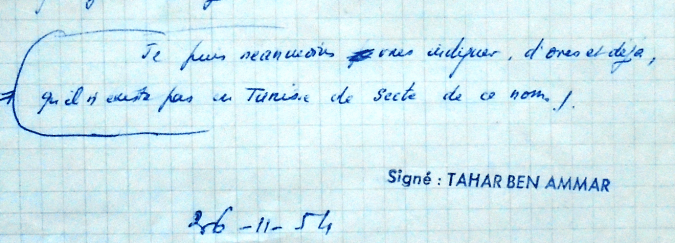 Je puis néanmoins vous indiquer, d'ores et déjà,
qu'il n'existe pas en Tunisie de Secte de ce nom.
Signé : TAHAR BEN AMMAR
26-11-54